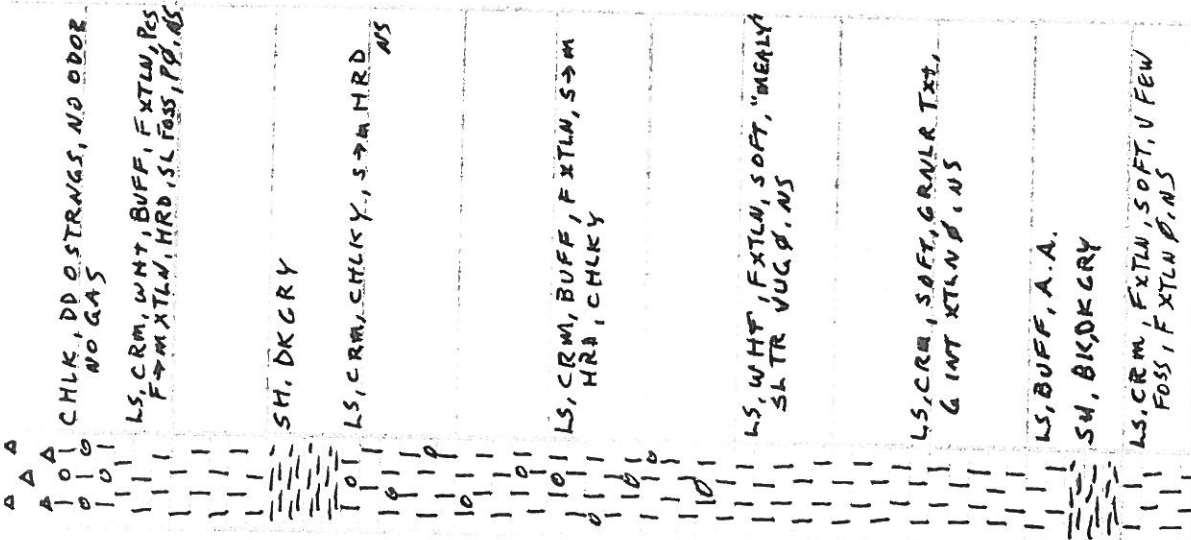 CHLK, DD O STRNGS, NO ODOR
NO GAS
LS, CRM, WHT, BUFF, FXTLN, PCS
F→m XTLN, HRD, SL FOSS, PØ, NS
SH. DKGRY
LS, CRM, CHLKY, S→m HRD
NS
LS, CRM, BUFF, FXTLN, S→m
HRD, CHLKY
LS, WHT, FXTLN, SOFT, "MEALY"
SL TR VUG Ø, NS
LS, CRM, SOFT, GRNLR TXT,
G INT XTLN Ø, NS
LS, BUFF, A.A.
SH, BLK, DKGRY
LS, CRM, FXTLN, SOFT, V FEW
FOSS, FXTLN Ø, NS